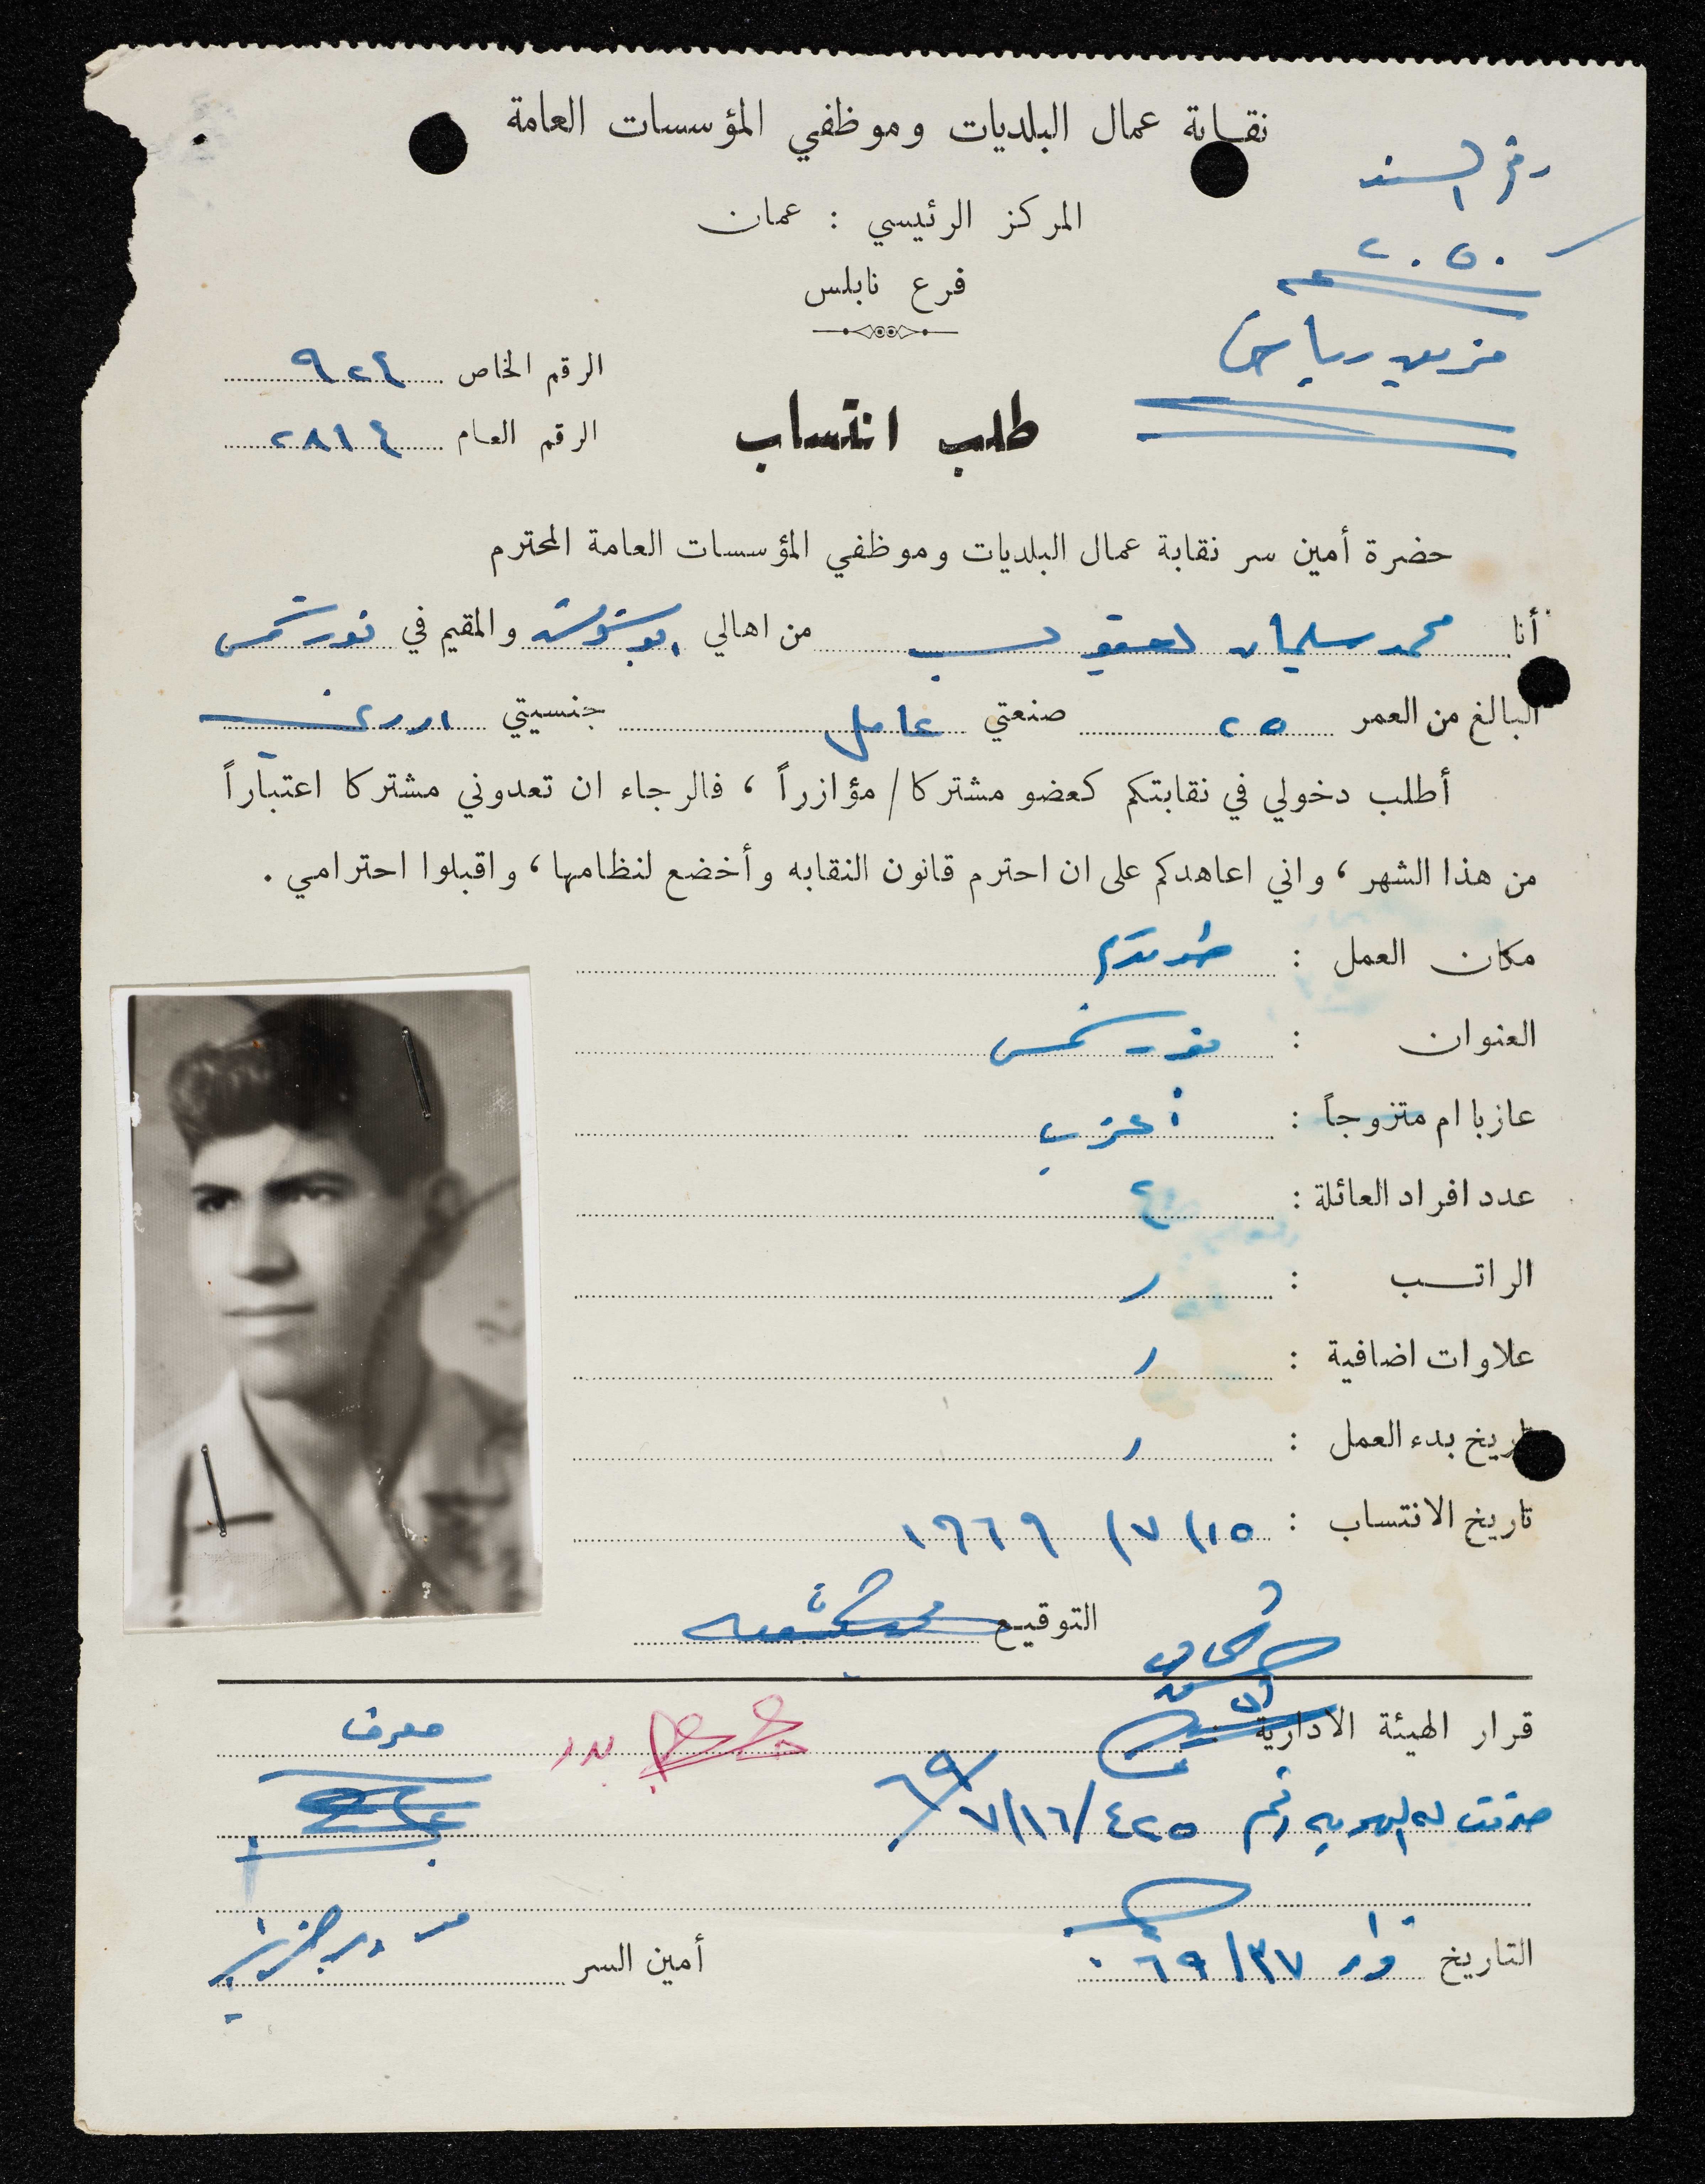 نقابة عمال البلديات وموظفي المؤسسات العامة
رقم السند
المركز الرئيسي : عمان
٢٠٥٠
فرع نابلس
الرقم الخاص ٩٢٤
الرقم العام ٢٨١٤
طلب انتساب
حضرة أمين سر نقابة عمال البلديات وموظفي المؤسسات العامة المحترم
أنا محمد سليمان يعقوب من اهالي ابو شوشة والمقيم في نور شمس
البالغ من العمر ٢٥ صنعتي عامل جنسيتي اردني
أطلب دخولي في نقابتكم كعضو مشتركا / مؤازراً ، فالرجاء ان تعدوني مشتركا اعتباراً
من هذا الشهر ، واني اعاهدكم على ان احترم قانون النقابه وأخضع لنظامها ، واقبلوا احترامي .
مكان العمل : طولكرم
العنوان : نور شمس
عازبا ام متزوجاً : أعزب
عدد افراد العائلة :
الراتب :
علاوات اضافية :
تاريخ بدء العمل :
تاريخ الانتساب : ١٥/ ٧/ ١٩٦٩
التوقيع
قرار الهيئة الادارية
معرف
صرفت له الهوية رقم ٤٢٥ ٧/١٦/ ٦٩
التاريخ
أمين السر